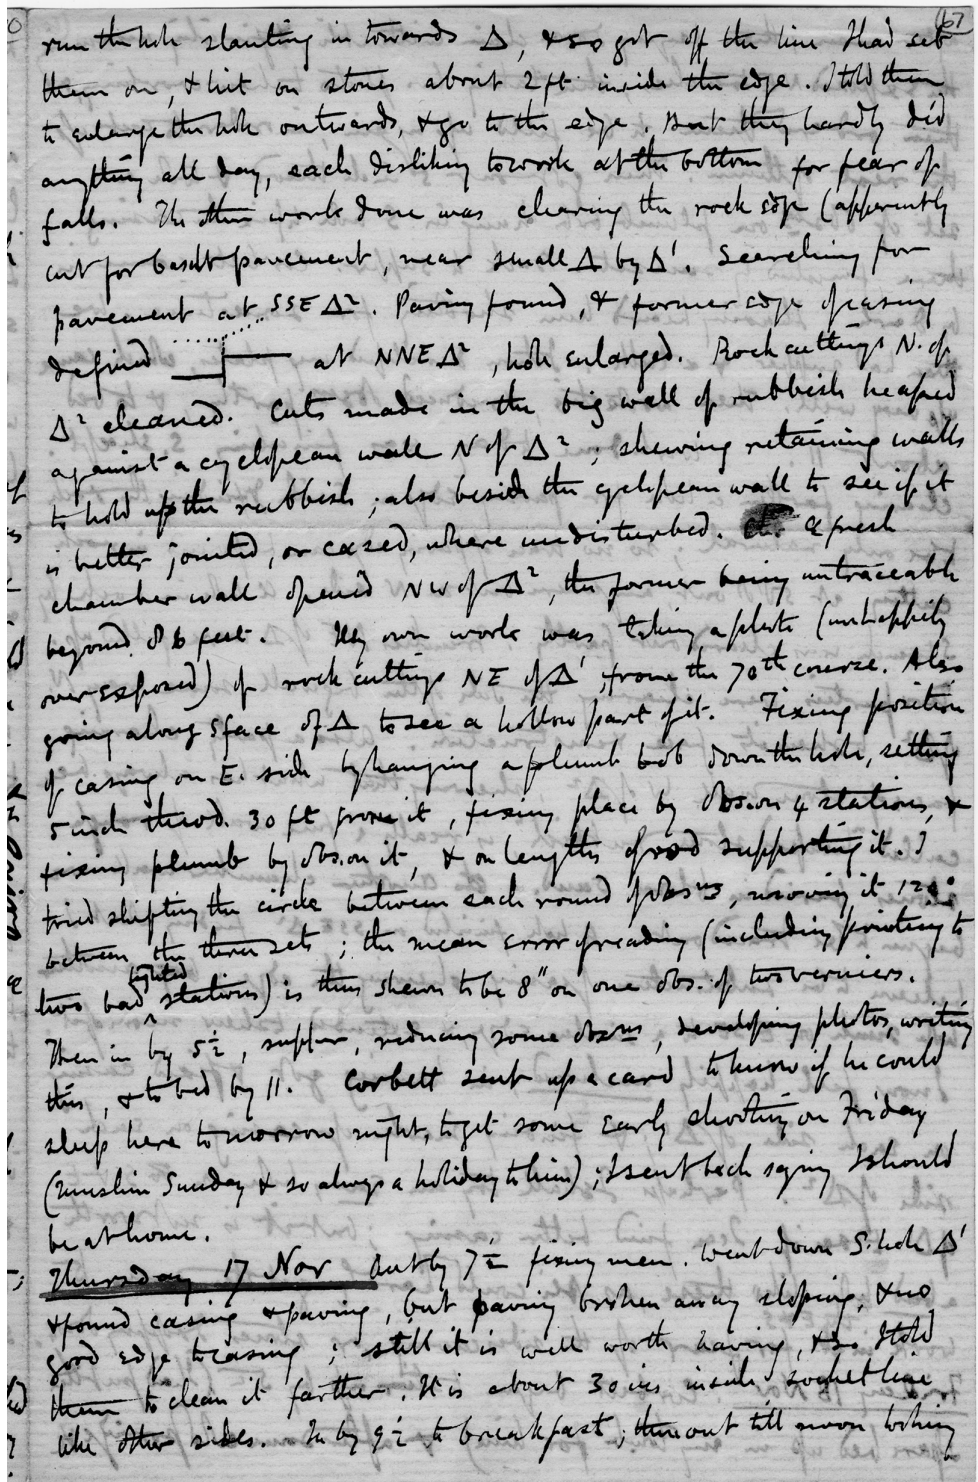 67
run the hole slanting in towards Δ, & so got off the line I had set
them on, & hit on stones about 2 ft inside the edge. I told them
to enlarge the hole outwards, & go to the edge. But they hardly did
anything all day, each disliking to work at the bottom for fear of
falls. The other work done was clearing the rock edge (apparently
cut for basalt pavement, near small Δ by Δ¹. Searching for
pavement at SSE Δ². Paving found, & former edge of casing
defined at NNE Δ², hole enlarged. Rock cuttings N. of
Δ² cleaned. Cuts made in the big wall of rubbish heaped
against a cyclopean wall N of Δ²; shewing retaining walls
to hold up the rubbish; also beside the cyclopean wall to see if it
is better jointed, or cased, where undisturbed. A fresh
chamber wall opened NW of Δ², the former being untraceable
beyond 86 feet. My own work was taking a plate (unhappily
over exposed) of rock cuttings NE of Δ¹, from the 70th course. Also
going along S face of Δ to see a hollow part of it. Fixing position
of casing on E. side by hanging a plumb bob down the hole, setting
5 inch theod. 30 ft from it, fixing place by obs on 4 stations, &
fixing plumb by obs. on it, & on lengths of rod supporting it. I
tried shifting the circle between each round of obsns, moving it 120°
between the three sets; the mean error of reading (including pointing to
two bad lighted stations) is thus shewn to be 8" on one obs. of two verniers.
Then in by 5½, supper, reducing some obsns, developing photos, writing
this, & to bed by 11. Corbett sent up a card to know if he could
sleep here tomorrow night, to get some early shooting on Friday
(Muslim Sunday & so always a holiday to him); I sent back saying I should
be at home.
Thursday 17 Nov Out by 7½ fixing men. Went down S. hole Δ¹
& found casing & paving, but paving broken away sloping, & no
good edge to casing; still it is well worth having, & so I told
them to clean it farther. It is about 30 ins inside socket line
like other sides. In by 9½ to breakfast; then out till noon looking